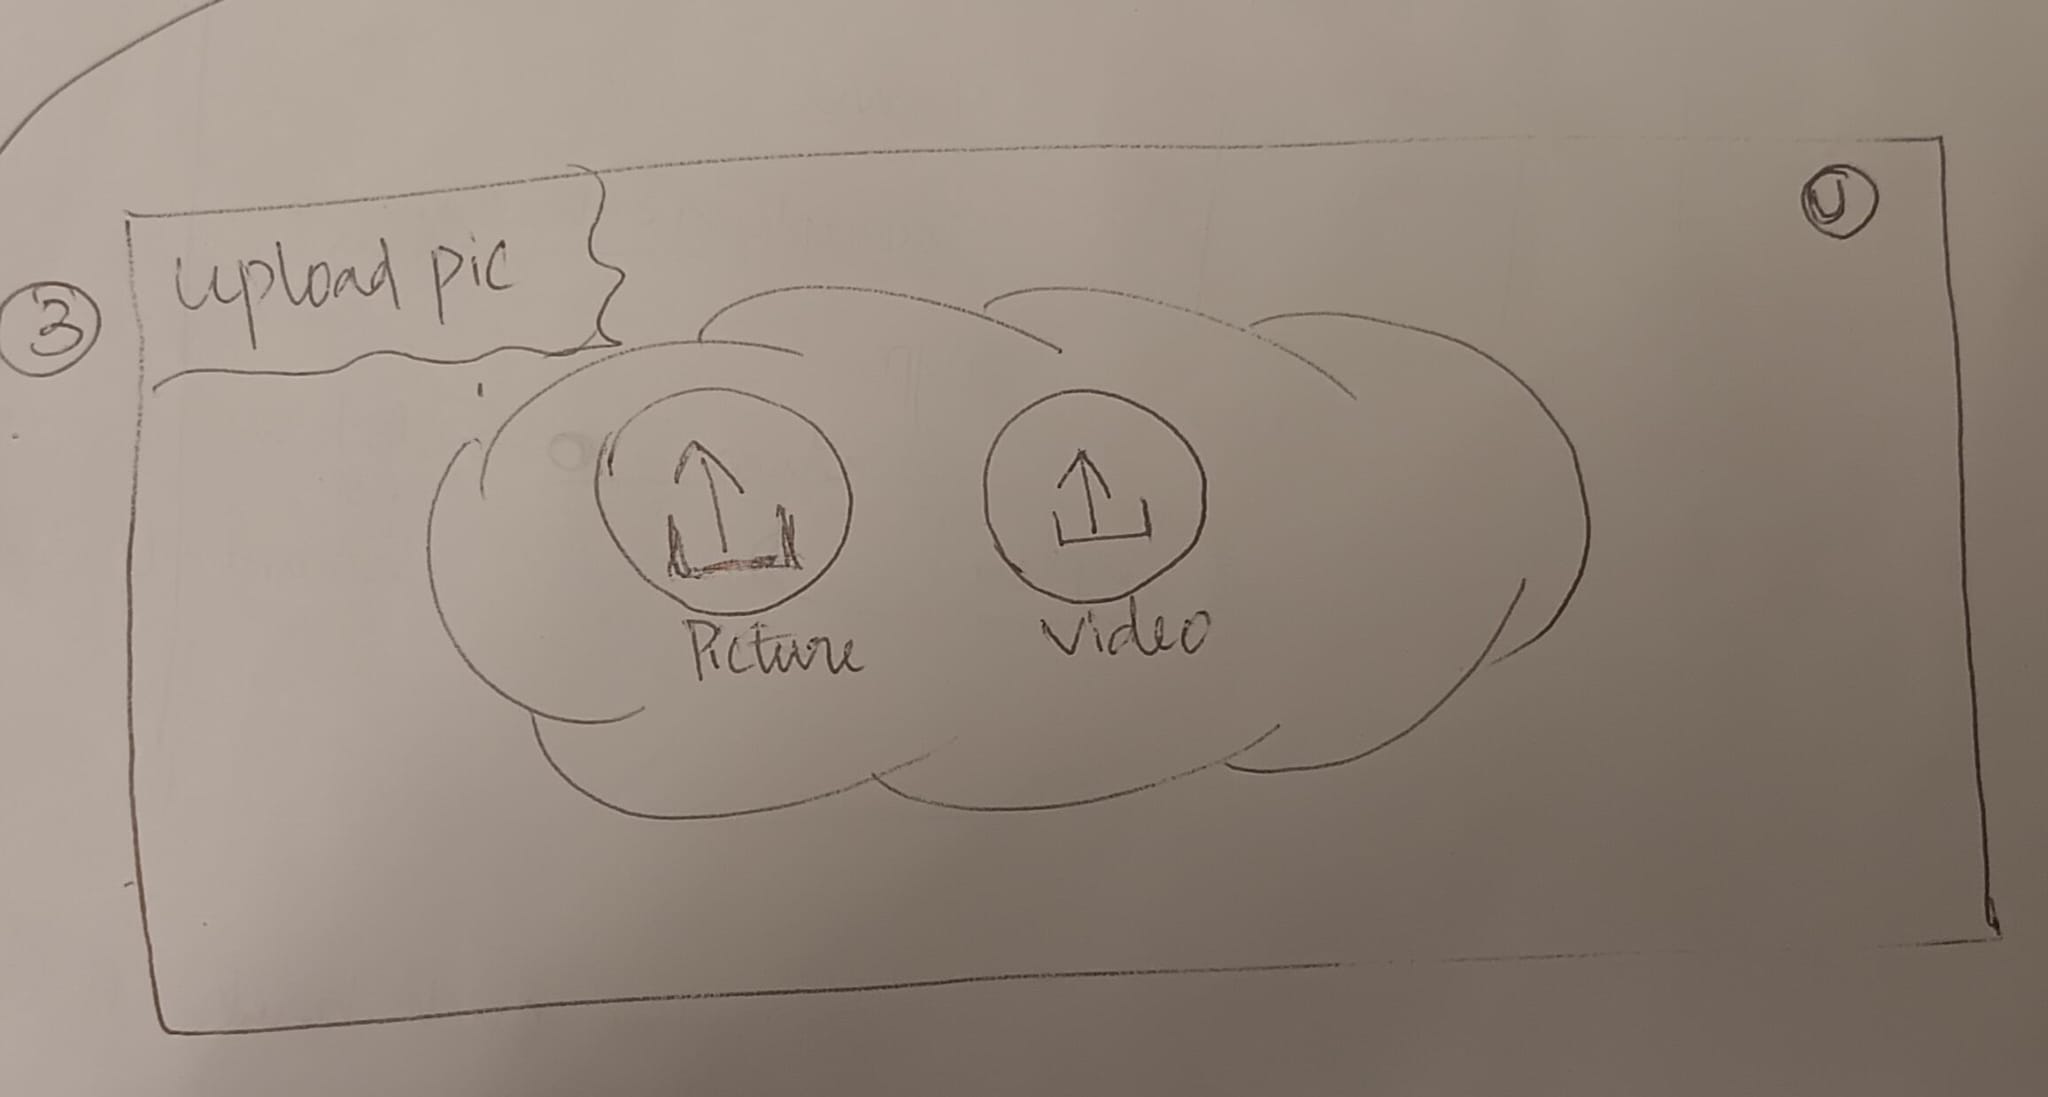 upload pic
U
3
Picture
Video